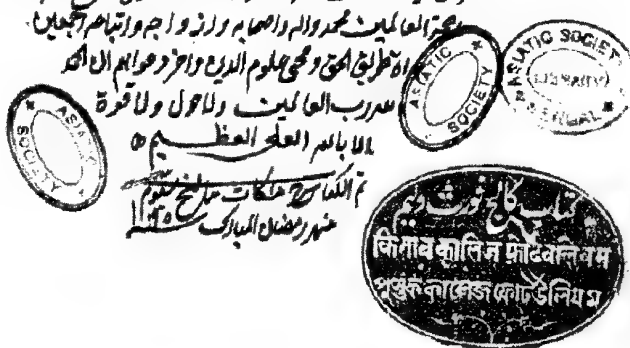 محمد واله واصحابه وازواجه واتباعه اجمعين
طريق الحق ومحى علوم الدين واخر دعواهم ان الحمد
لله رب العالمين ولا حول ولا قوة
الا بالله العلى العظيم
تم الكتاب
شهر رمضان المبارك
ASIATIC SOCIETY
ASIATIC SOCIETY
ASIATIC SOCIETY LIBRARY BENGAL
کتاب کالج فورٹ ولیم
किताब कालिज फोर्टवलियम
পুস্তক কালেজ ফোর্ট উলিয়ম